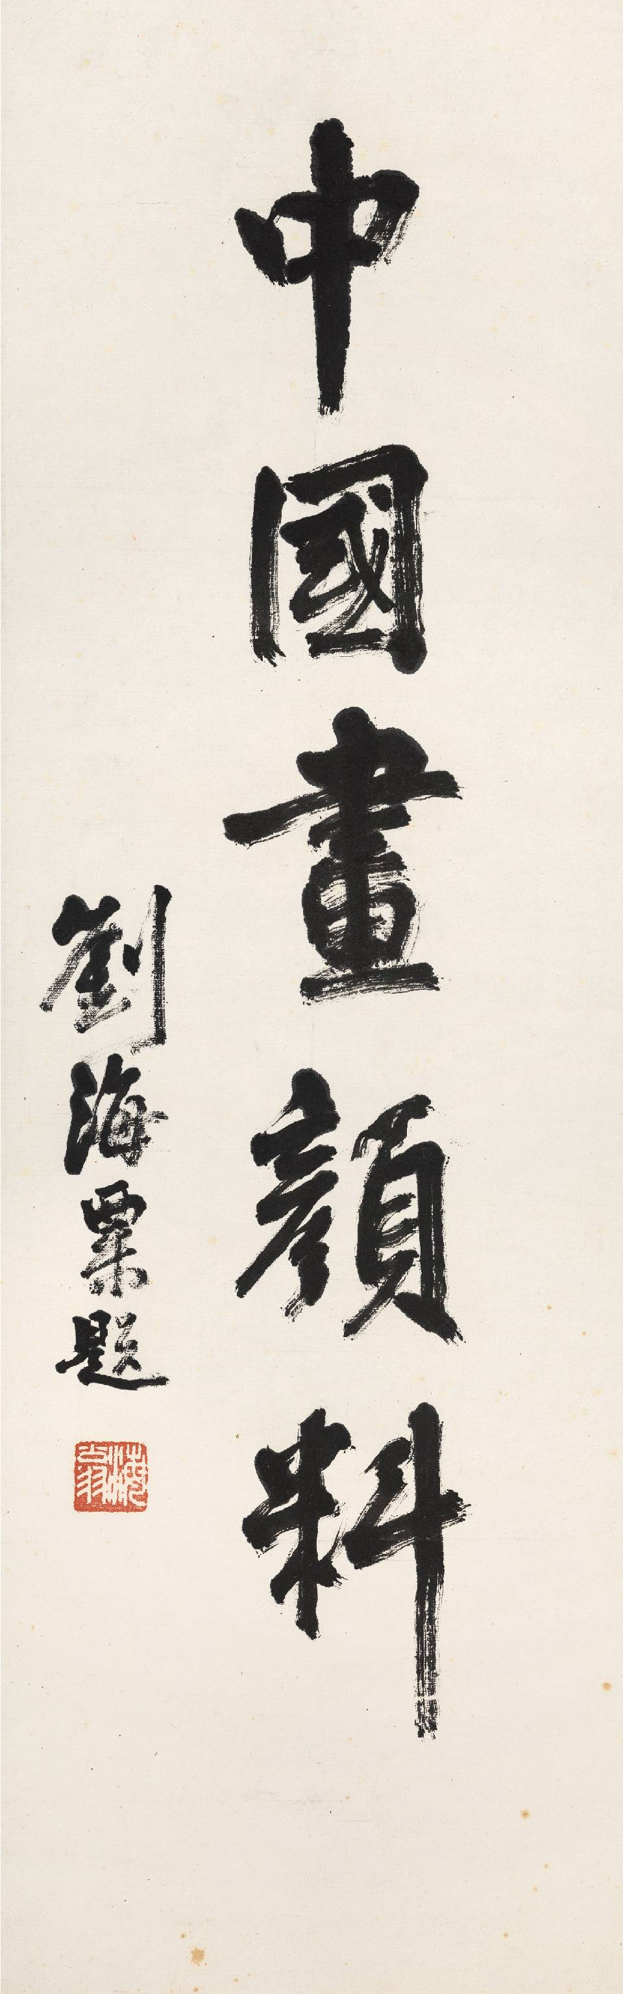 中國畫顏料
劉海粟題
海翁